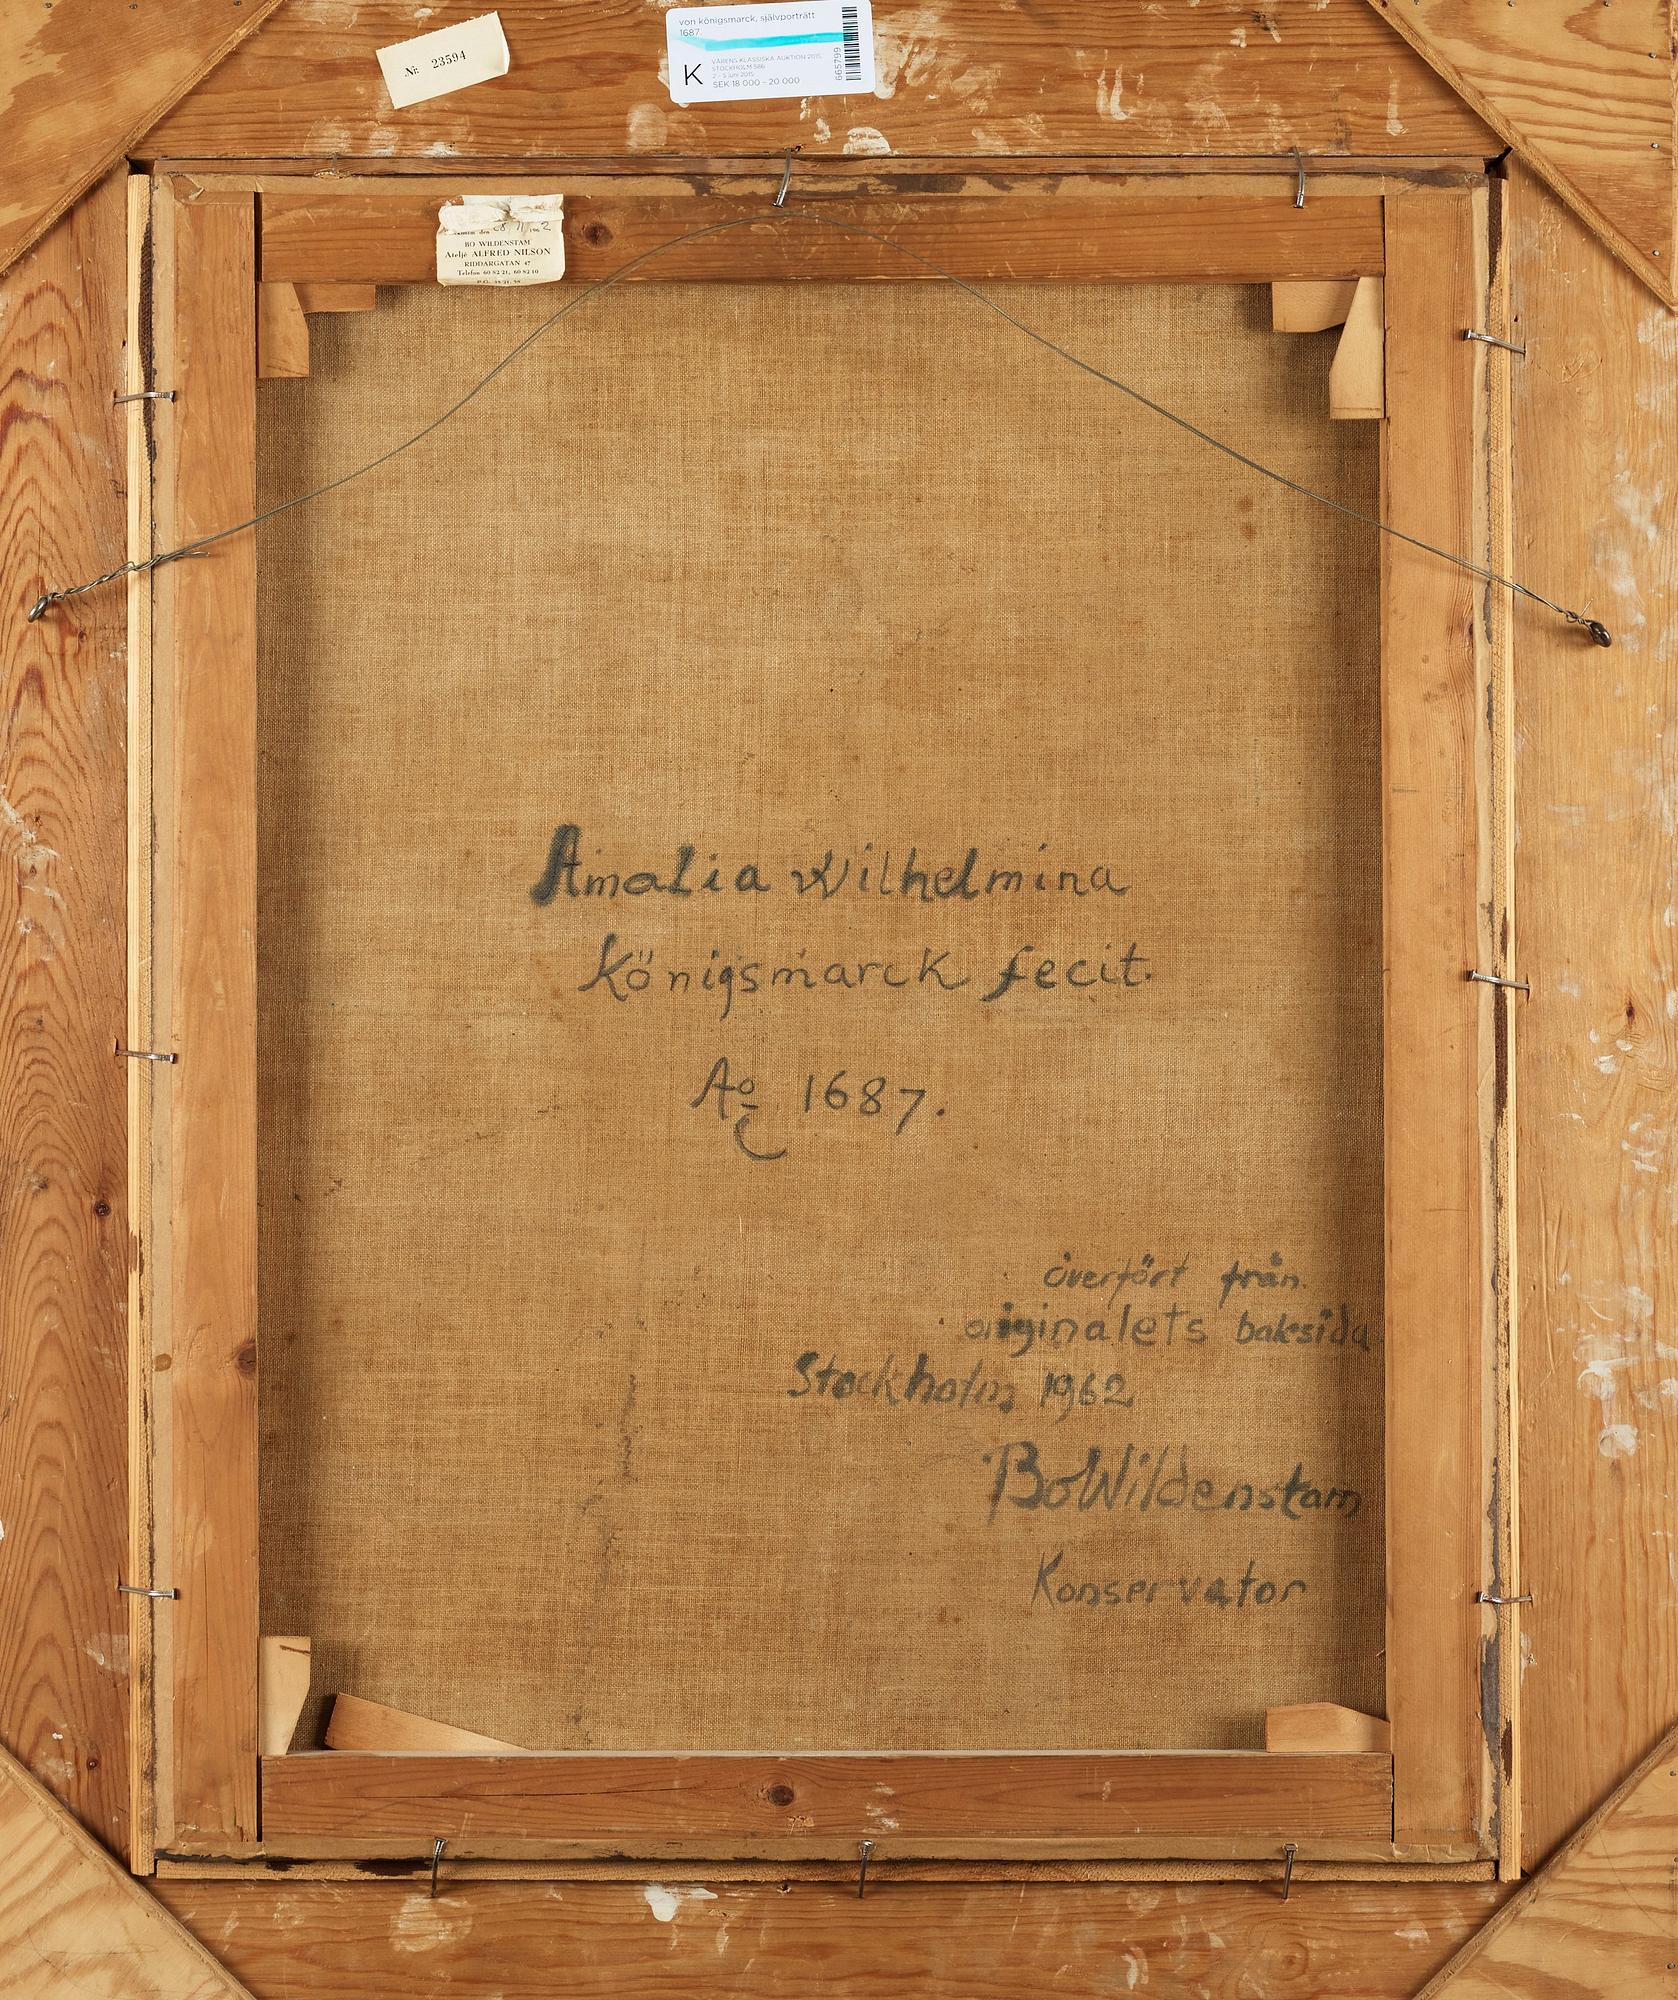 Nr 23594
von königsmarck, självporträtt
1687.
K
VÅRENS KLASSISKA AUKTION 2015,
STOCKHOLM 586
2 - 5 juni 2015
SEK 18 000 - 20 000
665799
den 28 11 1962
BO WILDENSTAM
Ateljé ALFRED NILSON
RIDDARGATAN 47
Telefon 60 82 21, 60 82 10
Amalia Wilhelmina
Königsmarck fecit.
Ao 1687.
överfört från
originalets baksida
Stockholm 1962
Bo Wildenstam
Konservator